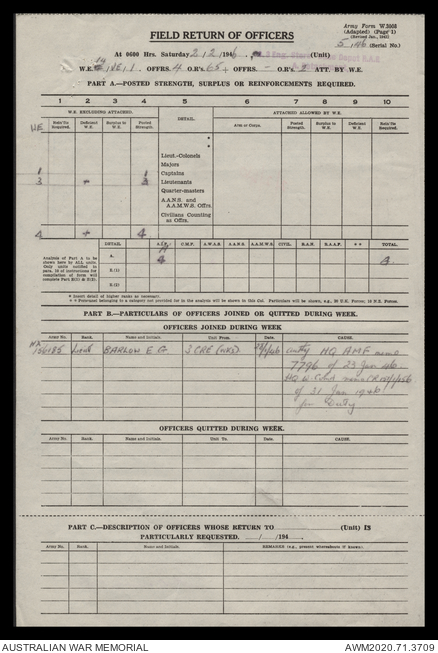 Army Form W.3008
(Adapted) (Page 1)
(Revised Jan., 1943)
FIELD RETURN OF OFFICERS
5/46 (Serial No.)
At 0600 Hrs. Saturday 2/2/1946 (Unit)
W.E. OFFRS. 4 O.R's. 65 + OFFRS. - O.R's. 2 ATT. BY W.E.
PART A.—POSTED STRENGTH, SURPLUS OR REINFORCEMENTS REQUIRED.
1 2 3 4 5 6 7 8 9 10
W.E. EXCLUDING ATTACHED. DETAIL. ATTACHED ALLOWED BY W.E.
WE
Rein'fts Required. Deficient W.E. Surplus to W.E. Posted Strength. Arm or Corps. Posted Strength. Surplus to W.E. Deficient W.E. Rein'fts Required.
*
*
Lieut.-Colonels
Majors
1 1 Captains
3 - 3 Lieutenants
Quarter-masters
A.A.N.S. and A.A.M.W.S. Offrs.
Civilians Counting as Offrs.
4 - 4
Analysis of Part A to be shown here by ALL units. Only units notified in para. 10 of instructions for compilation of form will complete Part B(1) & B(2).
DETAIL. C.M.F. A.W.A.S. A.A.N.S. A.A.M.W.S. CIVIL. R.A.N. R.A.A.F. * * TOTAL.
A. 4 4
B.(1)
B.(2)
* Insert detail of higher ranks as necessary.
* * Personnel belonging to a category not provided for in the analysis will be shown in this Col. Particulars will be shown, e.g., 20 U.K. Forces; 10 N.Z. Forces.
PART B.—PARTICULARS OF OFFICERS JOINED OR QUITTED DURING WEEK.
OFFICERS JOINED DURING WEEK
Army No. Rank. Name and Initials. Unit From. Date. CAUSE.
Lieut BARLOW E G 3 CRE (WKS) auth HQ AMF memo
7796 of 23 Jan 46
of 31 Jan 1946
for Duty
OFFICERS QUITTED DURING WEEK.
Army No. Rank. Name and Initials. Unit To. Date. CAUSE.
PART C.—DESCRIPTION OF OFFICERS WHOSE RETURN TO (Unit) IS
PARTICULARLY REQUESTED. / /194
Army No. Rank. Name and Initials. REMARKS (e.g., present whereabouts if known).
AUSTRALIAN WAR MEMORIAL AWM2020.71.3709